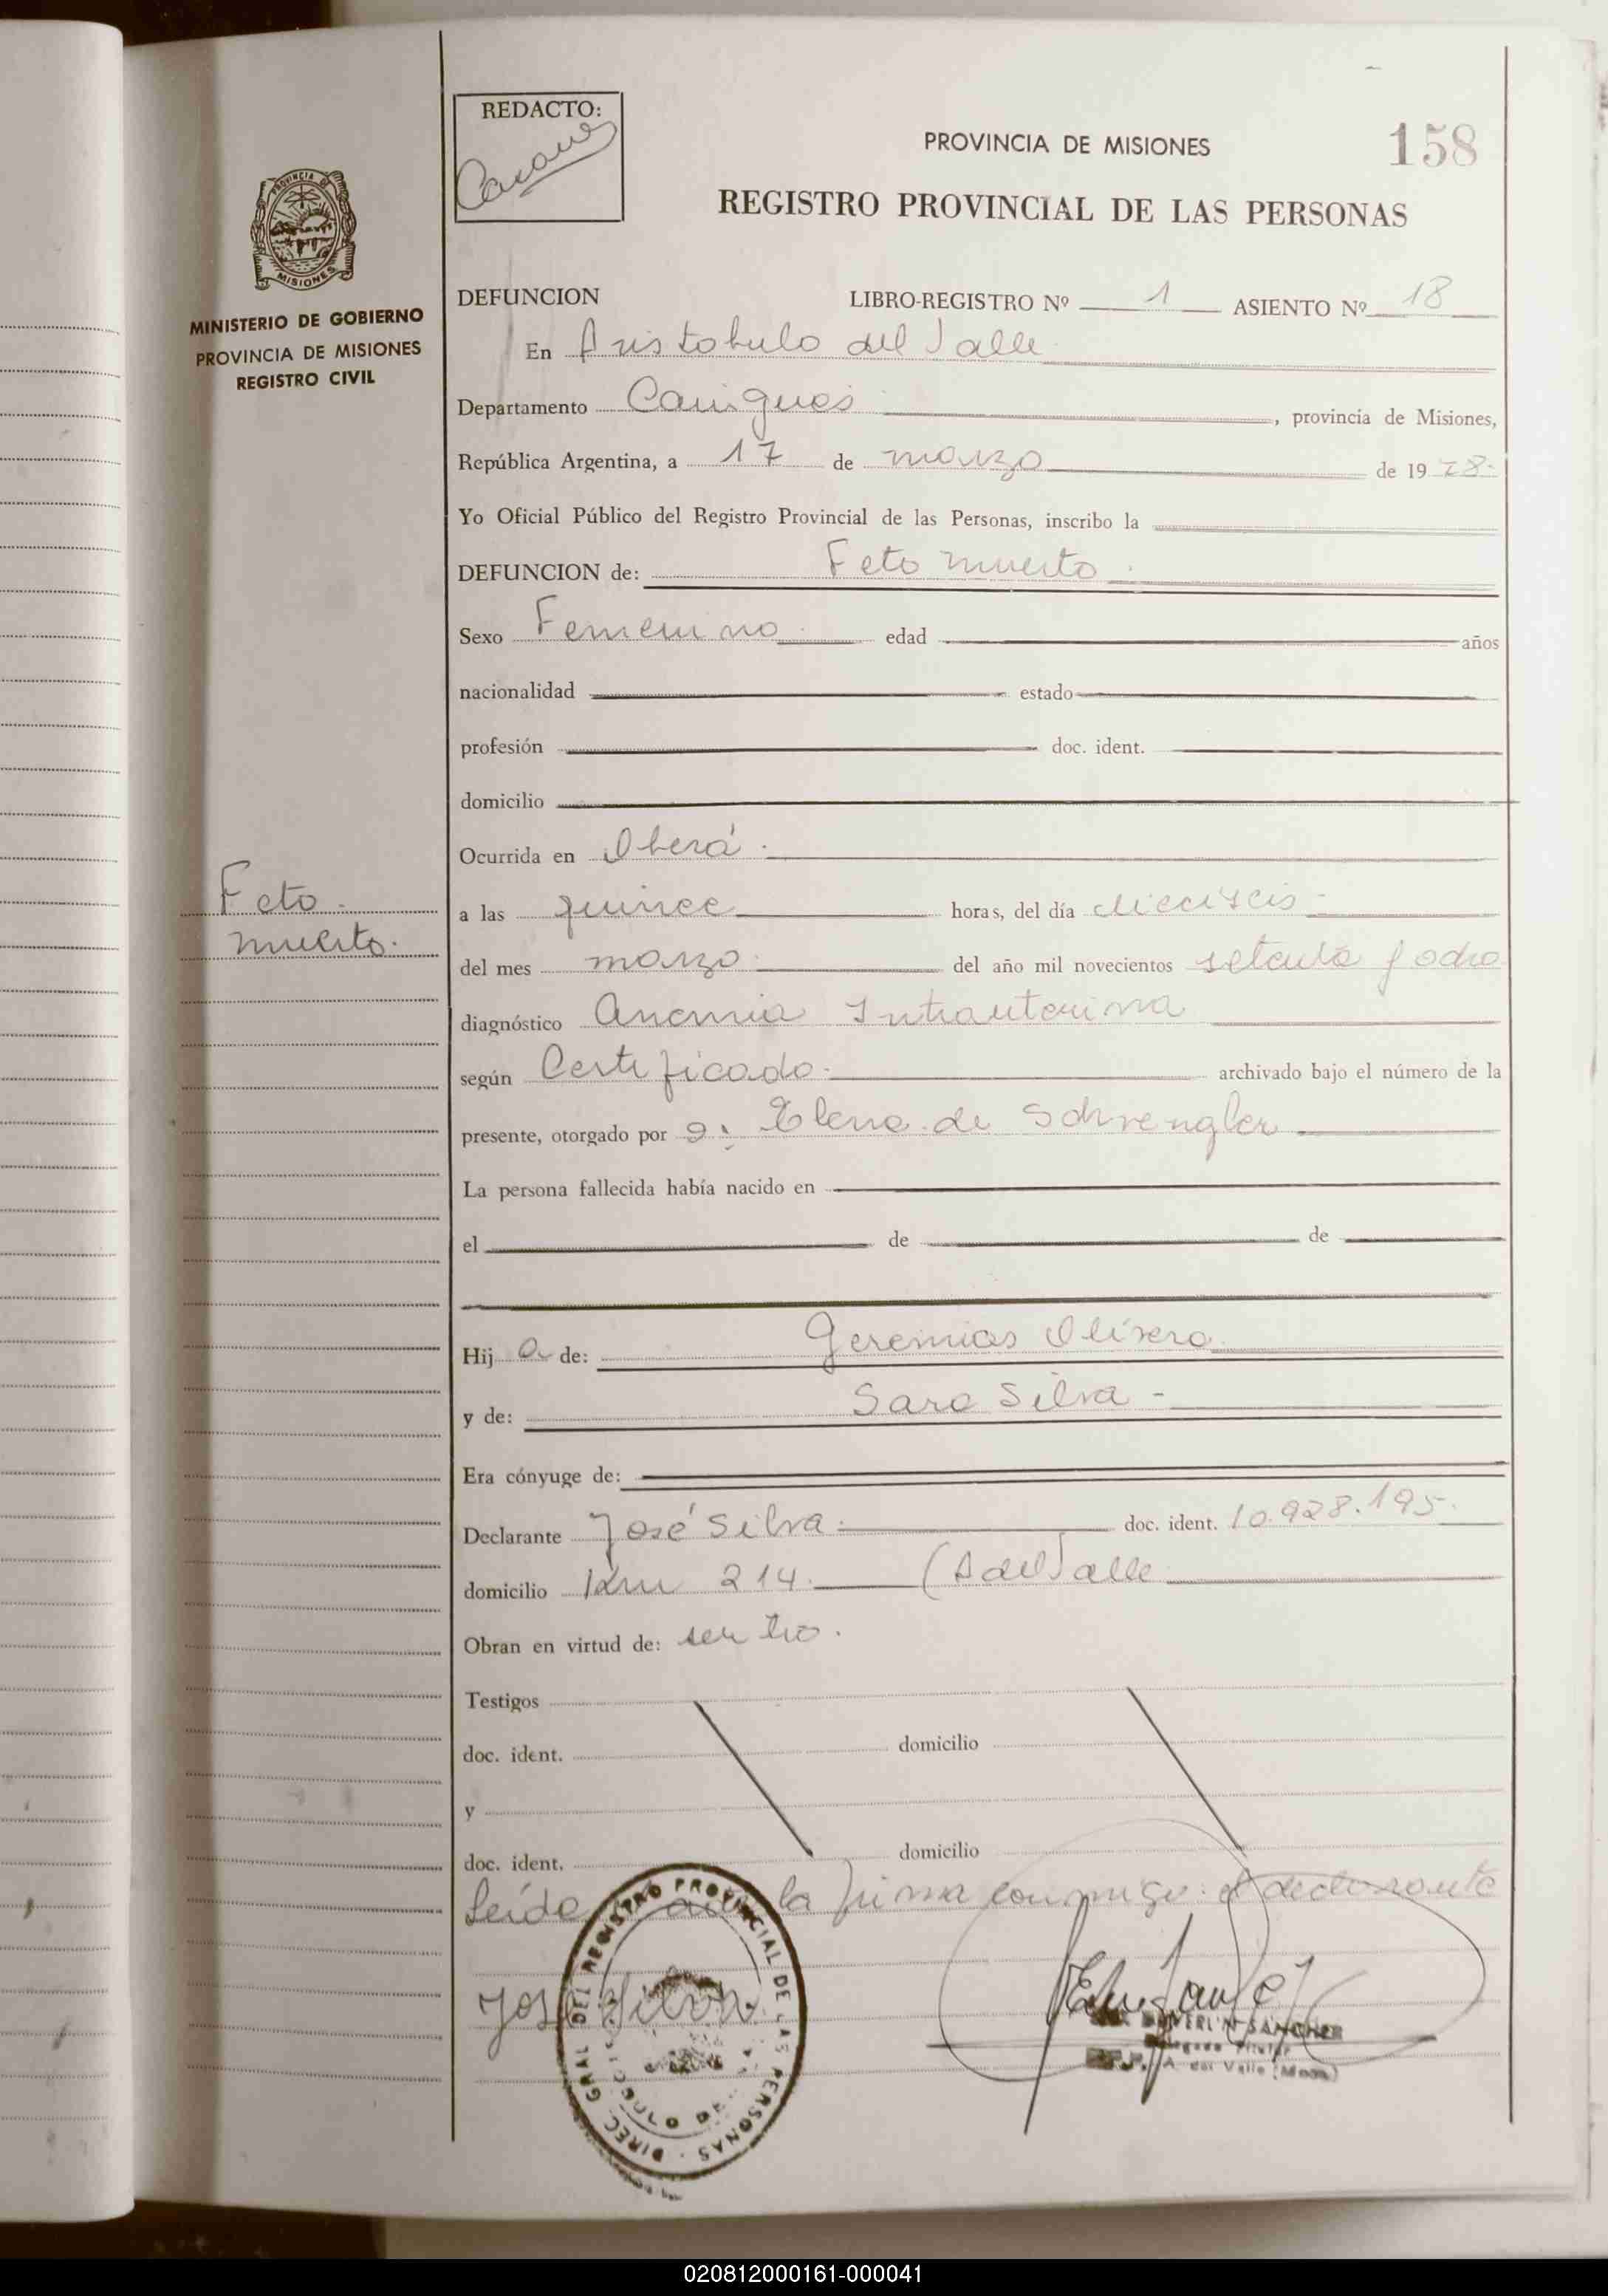 REDACTO:
PROVINCIA DE MISIONES
158
REGISTRO PROVINCIAL DE LAS PERSONAS
PROVINCIA DE
MISIONES
MINISTERIO DE GOBIERNO
PROVINCIA DE MISIONES
REGISTRO CIVIL
DEFUNCION LIBRO-REGISTRO Nº 1 ASIENTO Nº 18
En Aristobulo del Valle
Departamento Cainguas, provincia de Misiones,
República Argentina, a 17 de marzo de 1978.
Yo Oficial Público del Registro Provincial de las Personas, inscribo la
DEFUNCION de: Feto muerto.
Sexo Femenino edad años
nacionalidad estado
profesión doc. ident.
domicilio
Ocurrida en Oberá.
Feto
muerto.
a las quince horas, del día dieciseis
del mes marzo del año mil novecientos setenta y ocho
diagnóstico Anemia Intrauterina
según Certificado. archivado bajo el número de la
presente, otorgado por Elena de
La persona fallecida había nacido en
el de de
Hij a de: Geremias Olivera
y de: Sara Silva -
Era cónyuge de:
Declarante José Silva. doc. ident. 10.928.195.
domicilio Km 214. (A del Valle
Obran en virtud de: ser tio.
Testigos
doc. ident. domicilio
y
doc. ident. domicilio
Leida la firma conmigo: el declarante
José Silva
DIREC. GRAL DEL REGISTRO PROVINCIAL DE LAS PERSONAS
SANCHEZ
Titular
A. del Valle (Mnes)
020812000161-000041